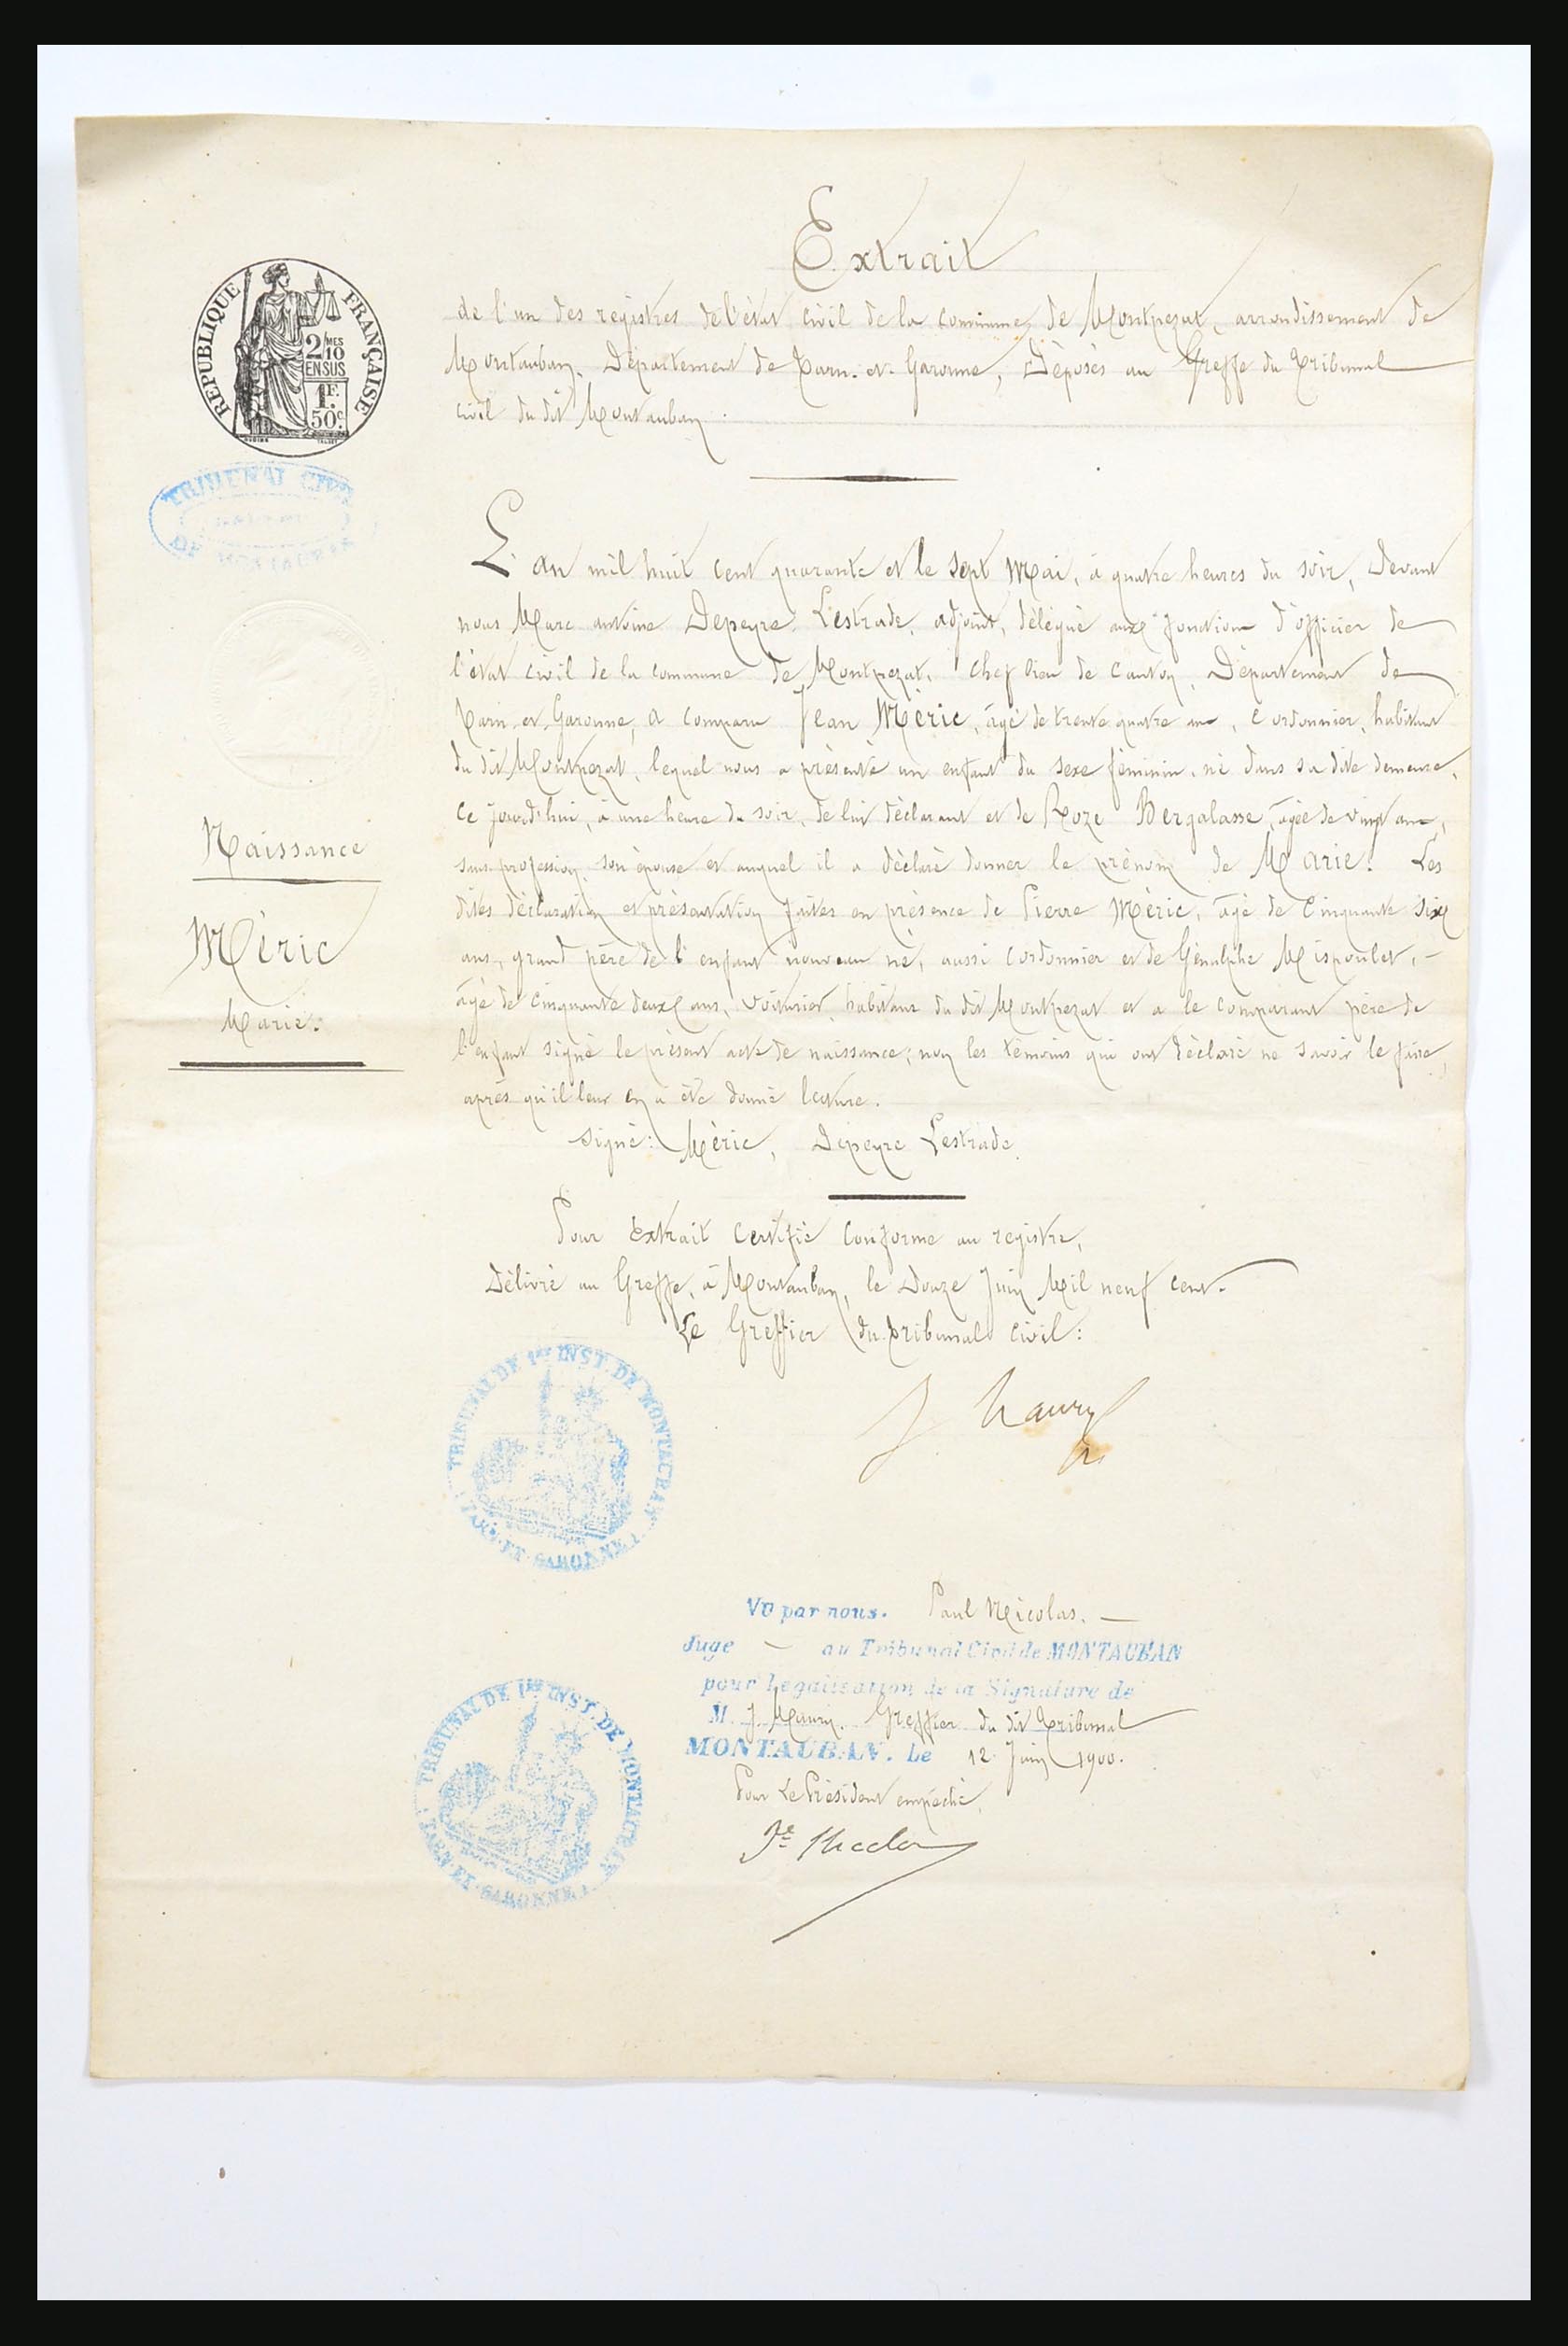 Extrait
de l'un des registres de l'état civil de la commune de Montpezat, arrondissement de
Montauban, Département de Tarn-et-Garonne, Déposés au Greffe du Tribunal
civil du dit Montauban.
RÉPUBLIQUE FRANÇAISE
2/MES
10
EN SUS
1F.
50c.
TRIBUNAL CIVIL
DE MONTAUBAN
L'an mil huit cent quarante et le sept Mai, à quatre heures du soir, Devant
nous Marc antoine Depeyre Lestrade, adjoint, délégué aux fonctions d'officier de
l'état civil de la commune de Montpezat, chef lieu de canton, Département de
Tarn et Garonne, a comparu Jean Méric, âgé de trente quatre ans, Cordonnier, habitant
du dit Montpezat, lequel nous a présenté un enfant du sexe féminin, né dans sa dite demeure,
Ce jourd'hui, à une heure du soir, de lui déclarant et de Roze Bergalasse, âgée de vingt ans,
sans profession, son épouse et auquel il a déclaré donner le prénom de Marie. Les
dites déclaration et présentation faites en présence de Pierre Méric, âgé de Cinquante six
ans, grand père de l'enfant nouveau né, aussi Cordonnier et de Génulphe Mispoulet,
âgé de cinquante deux ans, voiturier, habitans du dit Montpezat et a le comparant père de
l'enfant signé le présent acte de naissance; non les témoins qui ont déclaré ne savoir le faire,
après qu'il leur en a été donné lecture.
Signé: Méric, Depeyre Lestrade.
Naissance
Méric
Marie.
Pour Extrait Certifié Conforme au registre,
Délivré au Greffe, à Montauban, le Douze Juin Mil neuf cent.
Le Greffier du Tribunal civil:
J Maury
TRIBUNAL DE 1ère INST. DE MONTAUBAN
(TARN-ET-GARONNE)
Vu par nous. Paul Nicolas.
Juge au Tribunal Civil de MONTAUBAN
pour Légalisation de la Signature de
M. J. Maury. Greffier du dit Tribunal
MONTAUBAN. Le 12 Juin 1900.
Pour Le Président empêché,
TRIBUNAL DE 1ère INST. DE MONTAUBAN
(TARN-ET-GARONNE)